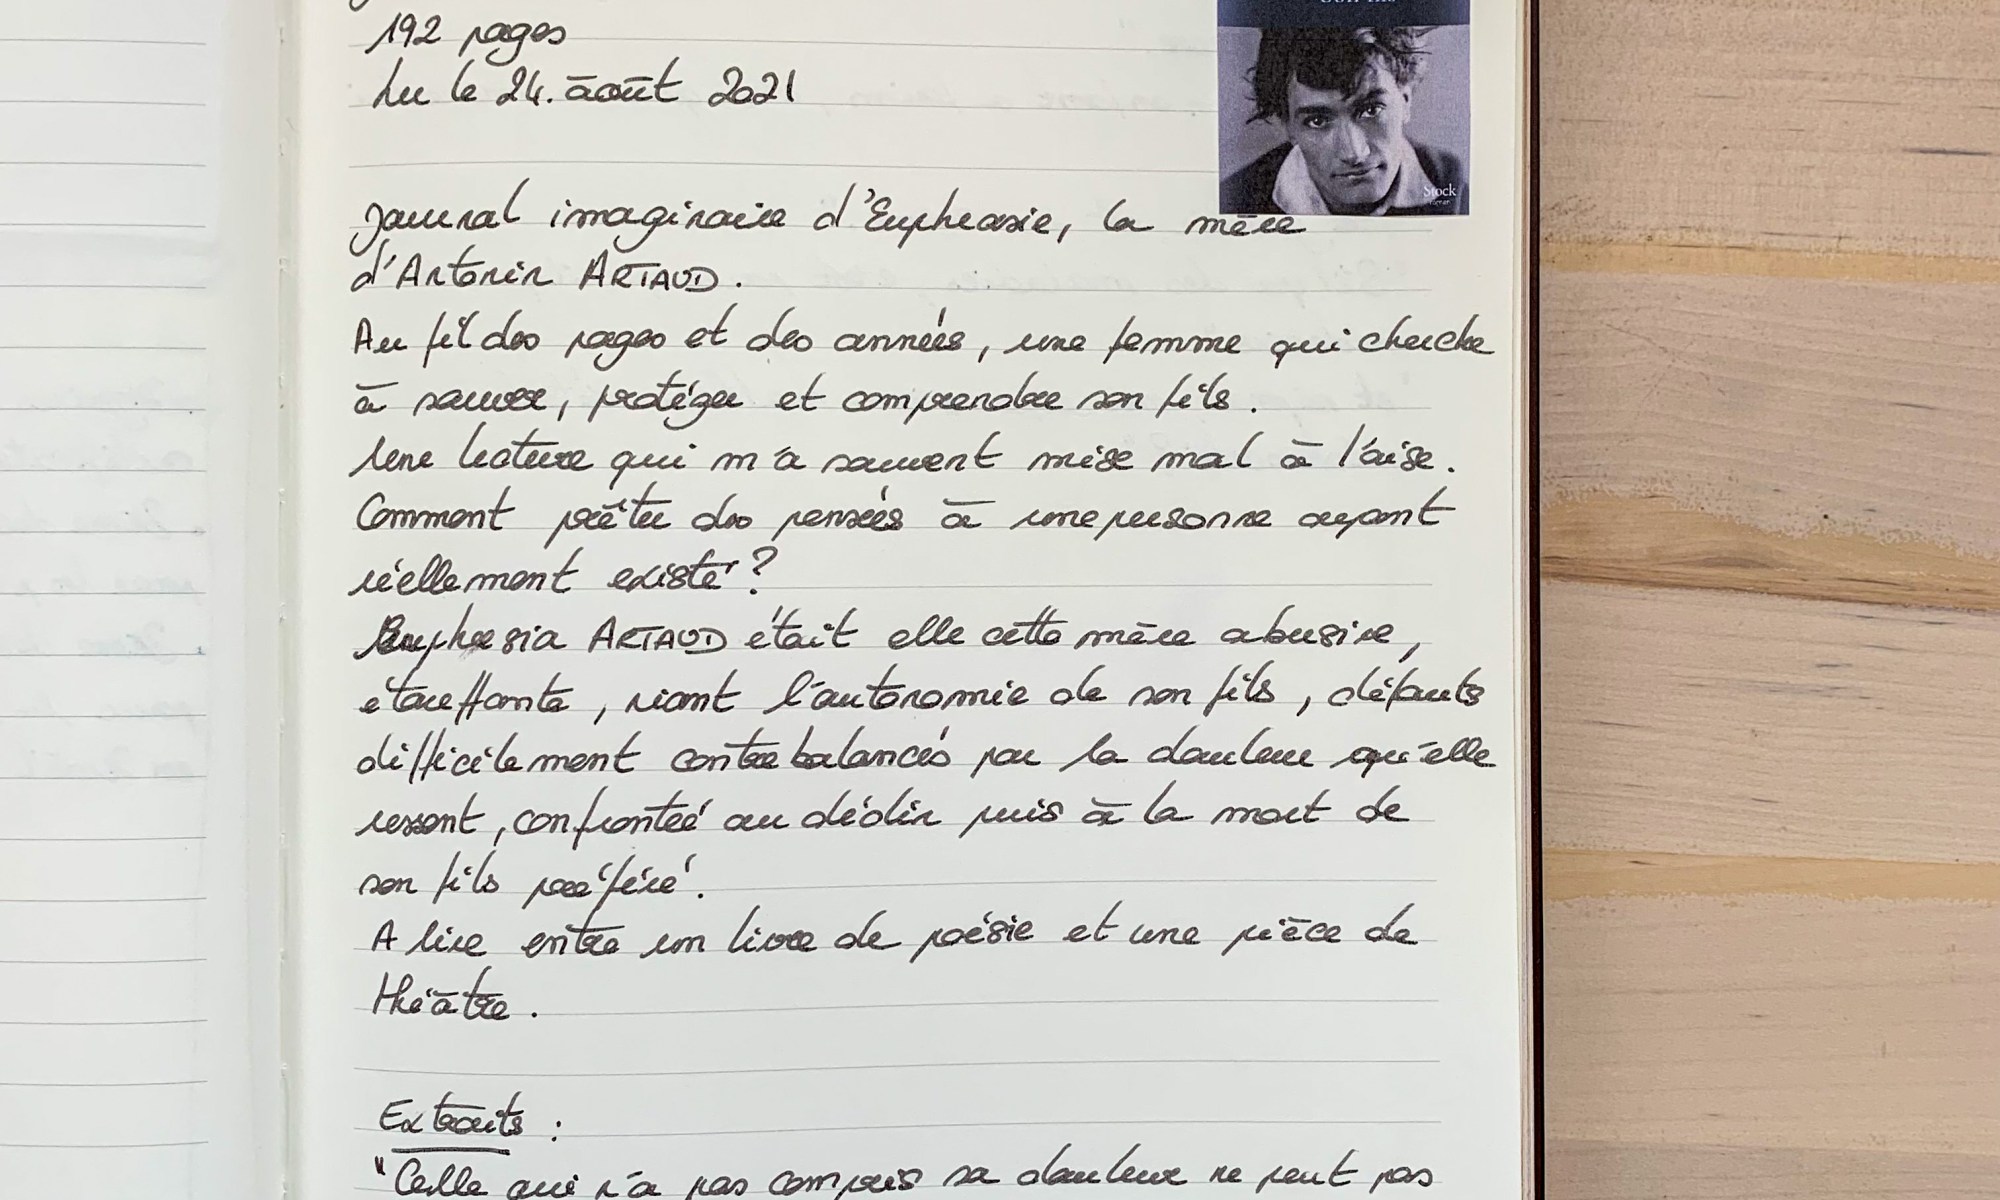 192 pages
Lu le 24. août 2021
Stock
Journal imaginaire d'Euphrasie, la mère
d'Antonin ARTAUD.
Au fil des pages et des années, une femme qui cherche
à sauver, protéger et comprendre son fils.
Une lecture qui m'a souvent mise mal à l'aise.
Comment prêter des pensées à une personne ayant
réellement existé ?
Euphrasia ARTAUD était elle cette mère abusive,
étouffante, niant l'autonomie de son fils, défauts
difficilement contrebalancés par la douleur qu'elle
ressent, confrontée au déclin puis à la mort de
son fils préféré.
A lire entre un livre de poésie et une pièce de
théâtre.
Extraits :
"Celle qui n'a pas compris sa douleur ne peut pas